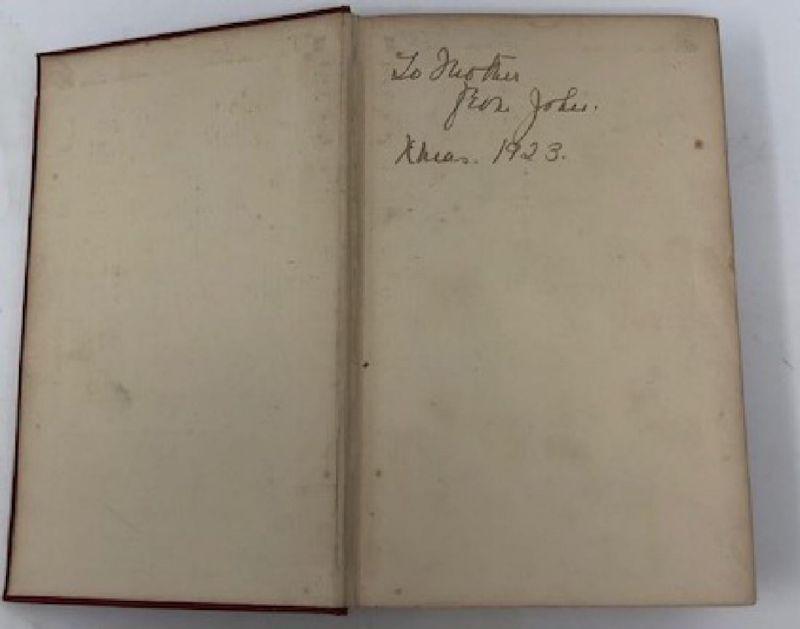 To Mother
from John.
Xmas. 1923.